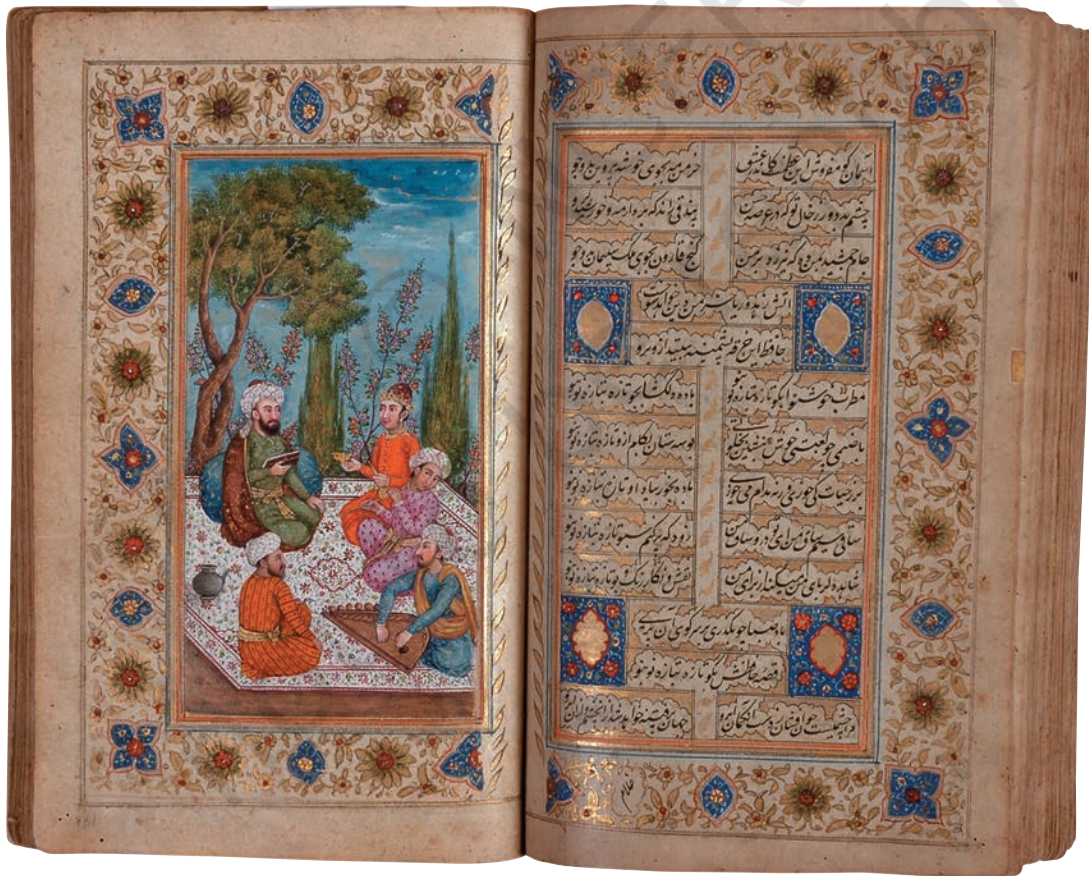 آسمان گو مفروش این عظمت کاندر عشق خرمن مه بجوی خوشه پروین بدو جو
چشم بد دور ز خال تو که در عرصه حسن بیدقی راند که برد از مه و خورشید گرو
جام جمشید بمن ده که نیرزد بر من گنج قارون بجوی ملک سلیمان بدو جو
آتش زهد و ریا خرمن دین خواهد سوخت
حافظ این خرقه پشمینه بینداز و برو
مطرب خوشنوا بگو تازه بتازه نو بنو باده دلگشا بجو تازه بتازه نو بنو
با صنمی چو لعبتی خوش بنشین بخلوتی بوسه ستان بکام ازو تازه بتازه نو بنو
بر ز حیات کی خوری گر نه مدام می خوری باده بخور بیاد او تازه بتازه نو بنو
ساقی سیم ساق من زود که پر کنم سبو تازه بتازه نو بنو
شاهد دلربای من میکند از برای من نقش و نگار و رنگ و بو تازه بتازه نو بنو
باد صبا چو بگذری بر سر کوی آن پری
قصه حافظش بگو تازه بتازه نو بنو
مرا چشمیست خون افشان ز دست آن کمان ابرو جهان پر فتنه خواهد شد از ان چشم و از ان ابرو
غلام